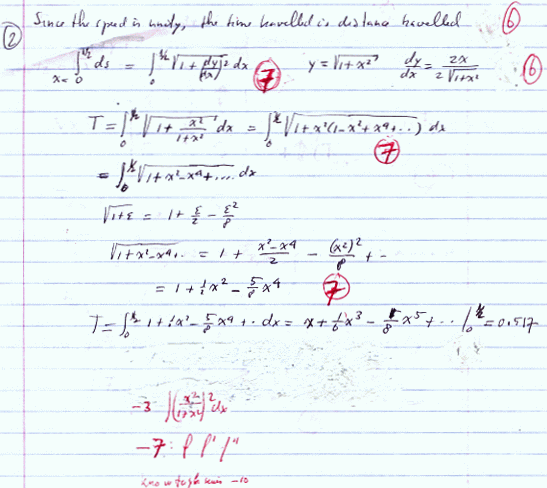 ② Since the speed is unity, the time travelled is distance travelled ⑥
∫_{x=0}^{1/2} ds = ∫_0^{1/2} √(1+(dy/dx)²) dx ⑦ y = √(1+x²) dy/dx = 2x/(2√(1+x²)) ⑥
T = ∫_0^{1/2} √(1 + x²/(1+x²)) dx = ∫_0^{1/2} √(1+x²(1-x²+x⁴+..)) dx
⑦
= ∫_0^{1/2} √(1+x²-x⁴+....) dx
√(1+ε) = 1 + ε/2 - ε²/8
√(1+x²-x⁴..) = 1 + (x²-x⁴)/2 - (x²)²/8 + -
= 1 + ½x² - 5/8 x⁴ ⑦
T = ∫_0^{1/2} 1 + ½x² - 5/8 x⁴ + .. dx = x + 1/6 x³ - 1/8 x⁵ + .. |_0^{1/2} = 0.517
-3 ∫(x²/(1+x²))² dx
-7: f f' f''
-10